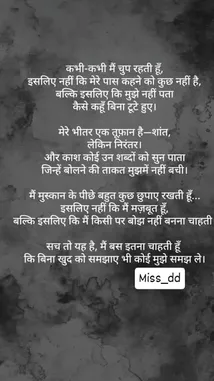 कभी-कभी मैं चुप रहती हूँ,
इसलिए नहीं कि मेरे पास कहने को कुछ नहीं है,
बल्कि इसलिए कि मुझे नहीं पता
कैसे कहूँ बिना टूटे हुए।
मेरे भीतर एक तूफ़ान है—शांत,
लेकिन निरंतर।
और काश कोई उन शब्दों को सुन पाता
जिन्हें बोलने की ताकत मुझमें नहीं बची।
मैं मुस्कान के पीछे बहुत कुछ छुपाए रखती हूँ...
इसलिए नहीं कि मैं मज़बूत हूँ,
बल्कि इसलिए कि मैं किसी पर बोझ नहीं बनना चाहती
सच तो यह है, मैं बस इतना चाहती हूँ
कि बिना खुद को समझाए भी कोई मुझे समझ ले।
Miss_dd